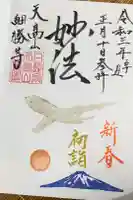 令和三年
正月十日参拝
妙法
天高山
細勝寺
新春
初詣